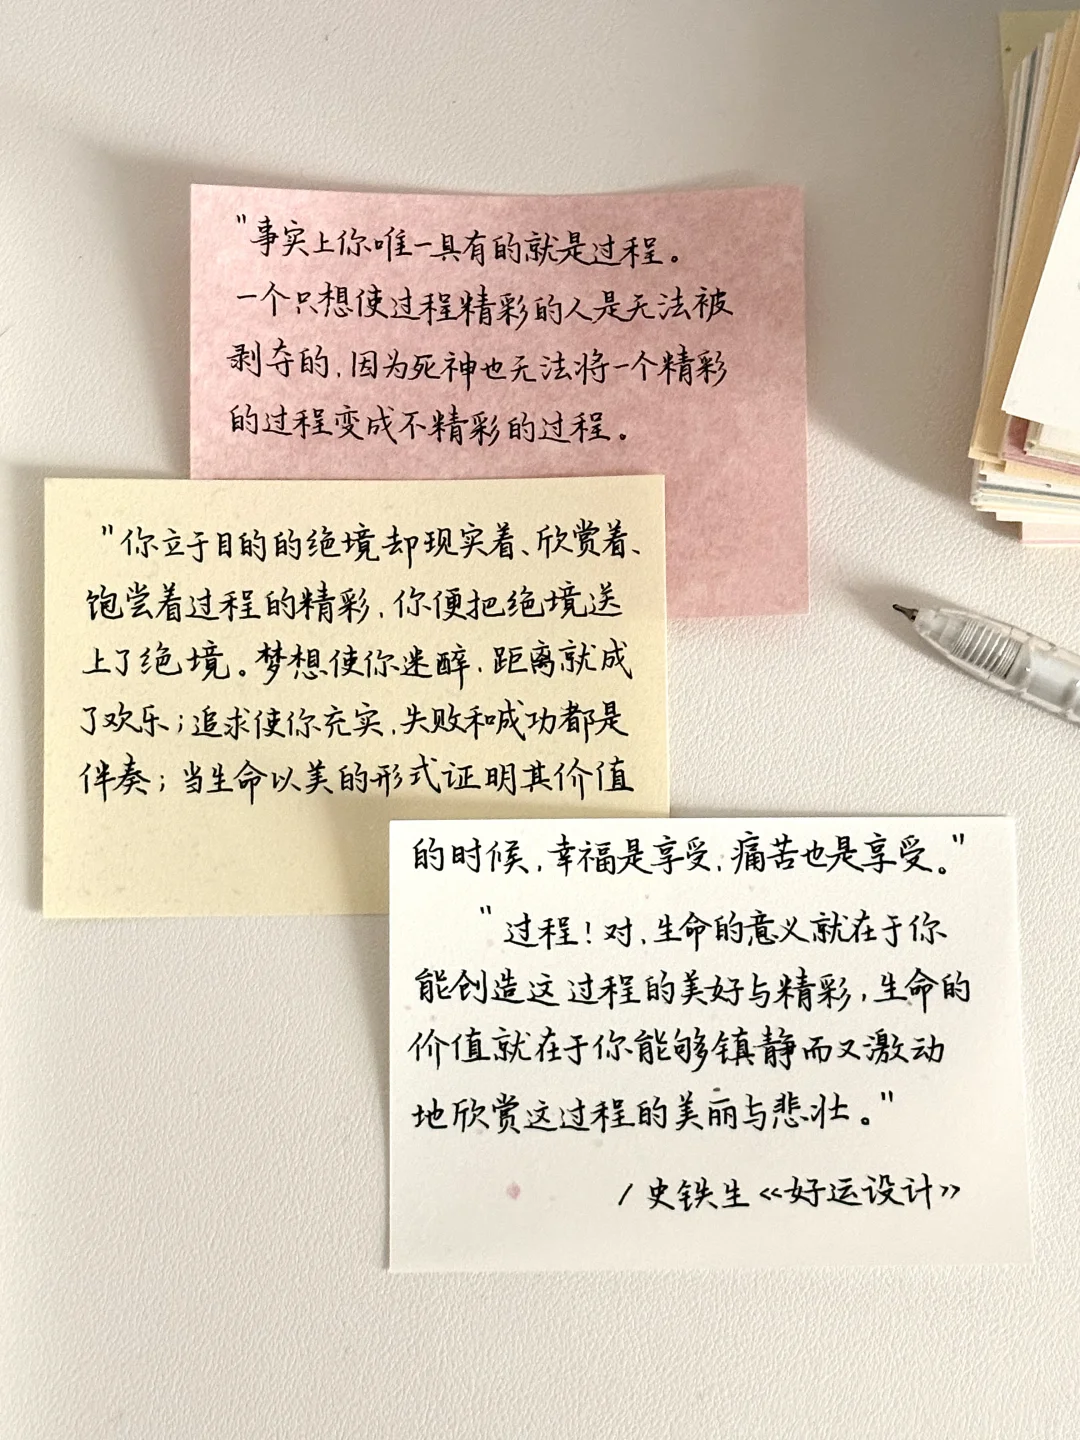 "事实上你唯一具有的就是过程。
一个只想使过程精彩的人是无法被
剥夺的,因为死神也无法将一个精彩
的过程变成不精彩的过程。
"你立于目的的绝境却现实着、欣赏着、
饱尝着过程的精彩,你便把绝境送
上了绝境。梦想使你迷醉,距离就成
了欢乐;追求使你充实,失败和成功都是
伴奏;当生命以美的形式证明其价值
的时候,幸福是享受,痛苦也是享受。"
"过程!对,生命的意义就在于你
能创造这过程的美好与精彩,生命的
价值就在于你能够镇静而又激动
地欣赏这过程的美丽与悲壮。"
/史铁生《好运设计》